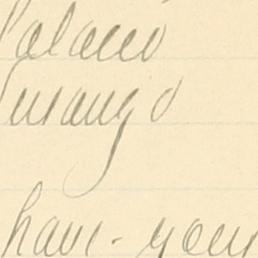 Palacio
Durango
have - your